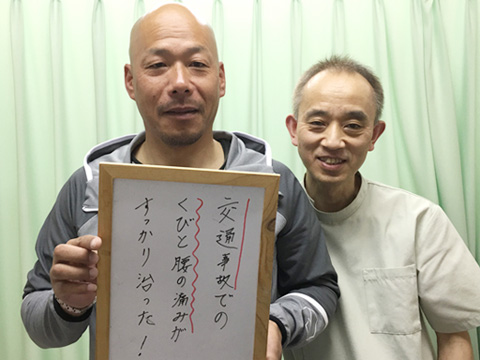 交通事故での
くびと腰の痛みが
すっかり治った!